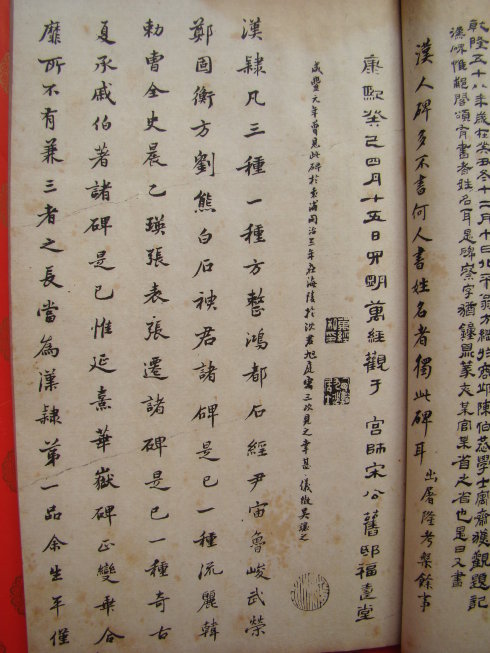 乾隆五十八年歲在癸丑冬十二月十日北平翁方綱於商邱陳伯恭學士寓齋獲觀題記
漢碑惟閣頌有書者姓名耳是碑察字猶鐘鼎篆文某官某省之省也是日又書
漢人碑多不書何人書姓名者獨此碑耳 出屠隆考槃餘事
康熙癸巳四月十五日四明萬經觀于 宮師宋公舊邸福壹堂
咸豐六年曾見此碑於袁浦同治三年在海陵於沈君旭庭寓三次見之幸甚 儀徵吳讓之
漢隸凡三種一種方整鴻都石經尹宙魯峻武榮
鄭固衡方劉熊白石神君諸碑是已一種流麗韓
勑曹全史晨乙瑛張表張遷諸碑是已一種奇古
夏承戚伯著諸碑是已惟延熹華嶽碑正變乖合
靡所不有兼三者之長當為漢隸第一品余生年僅